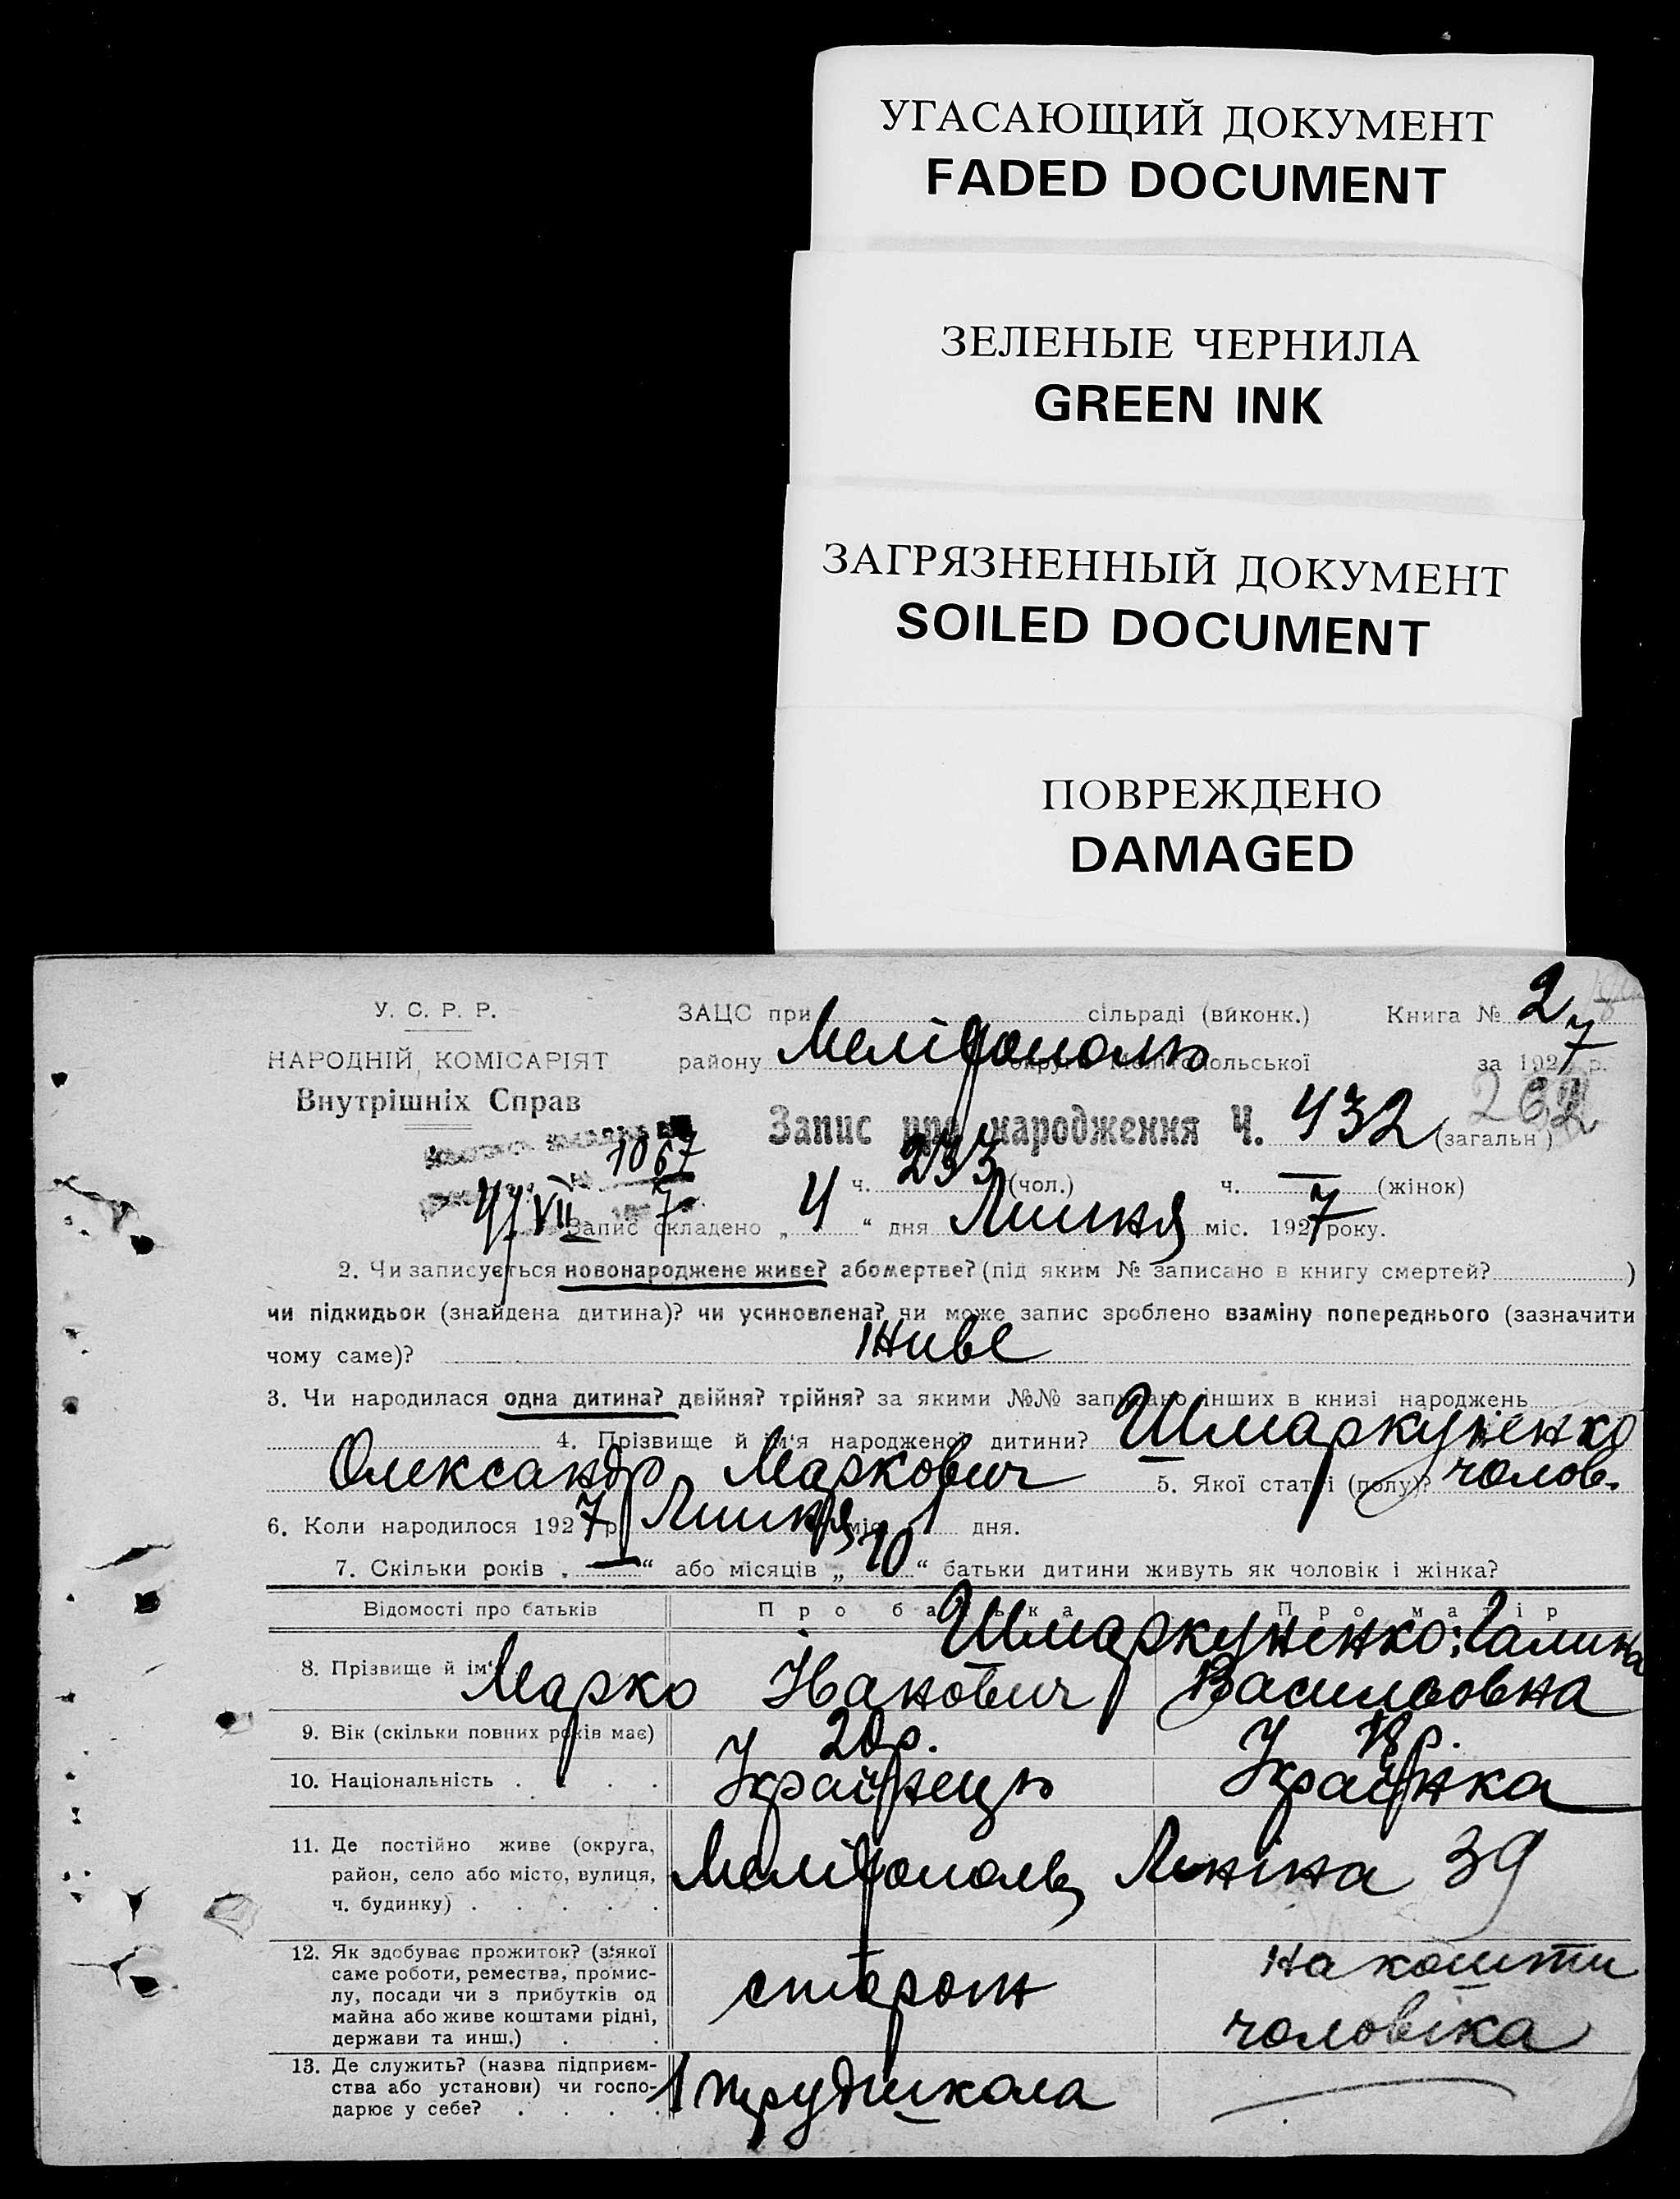 УГАСАЮЩИЙ ДОКУМЕНТ
FADED DOCUMENT
ЗЕЛЕНЫЕ ЧЕРНИЛА
GREEN INK
ЗАГРЯЗНЕННЫЙ ДОКУМЕНТ
SOILED DOCUMENT
ПОВРЕЖДЕНО
DAMAGED
У. С. Р. Р.
НАРОДНІЙ КОМІСАРІЯТ
Внутрішніх Справ
ЗАЦС при сільраді (виконк.) Книга № 2
району Мелітополь округи Мелітопольської за 1927 р.
Запис про народження Ч. 432 (загальн)
262
1067
ч. 233 (чол.) ч. — (жінок)
4/VII 7
Запис складено „4“ дня Липня міс. 1927 року.
2. Чи записується новонароджене живе? або мертве? (під яким № записано в книгу смертей? )
чи підкидьок (знайдена дитина)? чи усиновлена? чи може запис зроблено взаміну попереднього (зазначити
чому саме)? Живе
3. Чи народилася одна дитина? двійня? трійня? за якими №№ записано інших в книзі народжень
4. Прізвище й ім'я народженої дитини? Шмаркуненко
Олександр Маркович 5. Якої статті (полу)? чолов.
6. Коли народилося 1927 р. Липня міс. 1 дня.
7. Скільки років „—“ або місяців „10“ батьки дитини живуть як чоловік і жінка?
Відомості про батьків Про батька Про матір
8. Прізвище й ім'я Шмаркуненко: Галина
Марко Іванович Васильовна
9. Вік (скільки повних років має) 20 р. 18 р.
10. Національність . . . . Українець Українка
11. Де постійно живе (округа,
район, село або місто, вулиця,
ч. будинку) . . . . .
Мелітополь, Леніна 39
12. Як здобуває прожиток? (з якої
саме роботи, ремества, промис-
лу, посади чи з прибутків од
майна або живе коштами рідні,
держави та инш.) . .
сторож
на кошти
чоловіка
13. Де служить? (назва підприєм-
ства або установи) чи госпо-
дарює у себе? . . . .
1 трудшкола